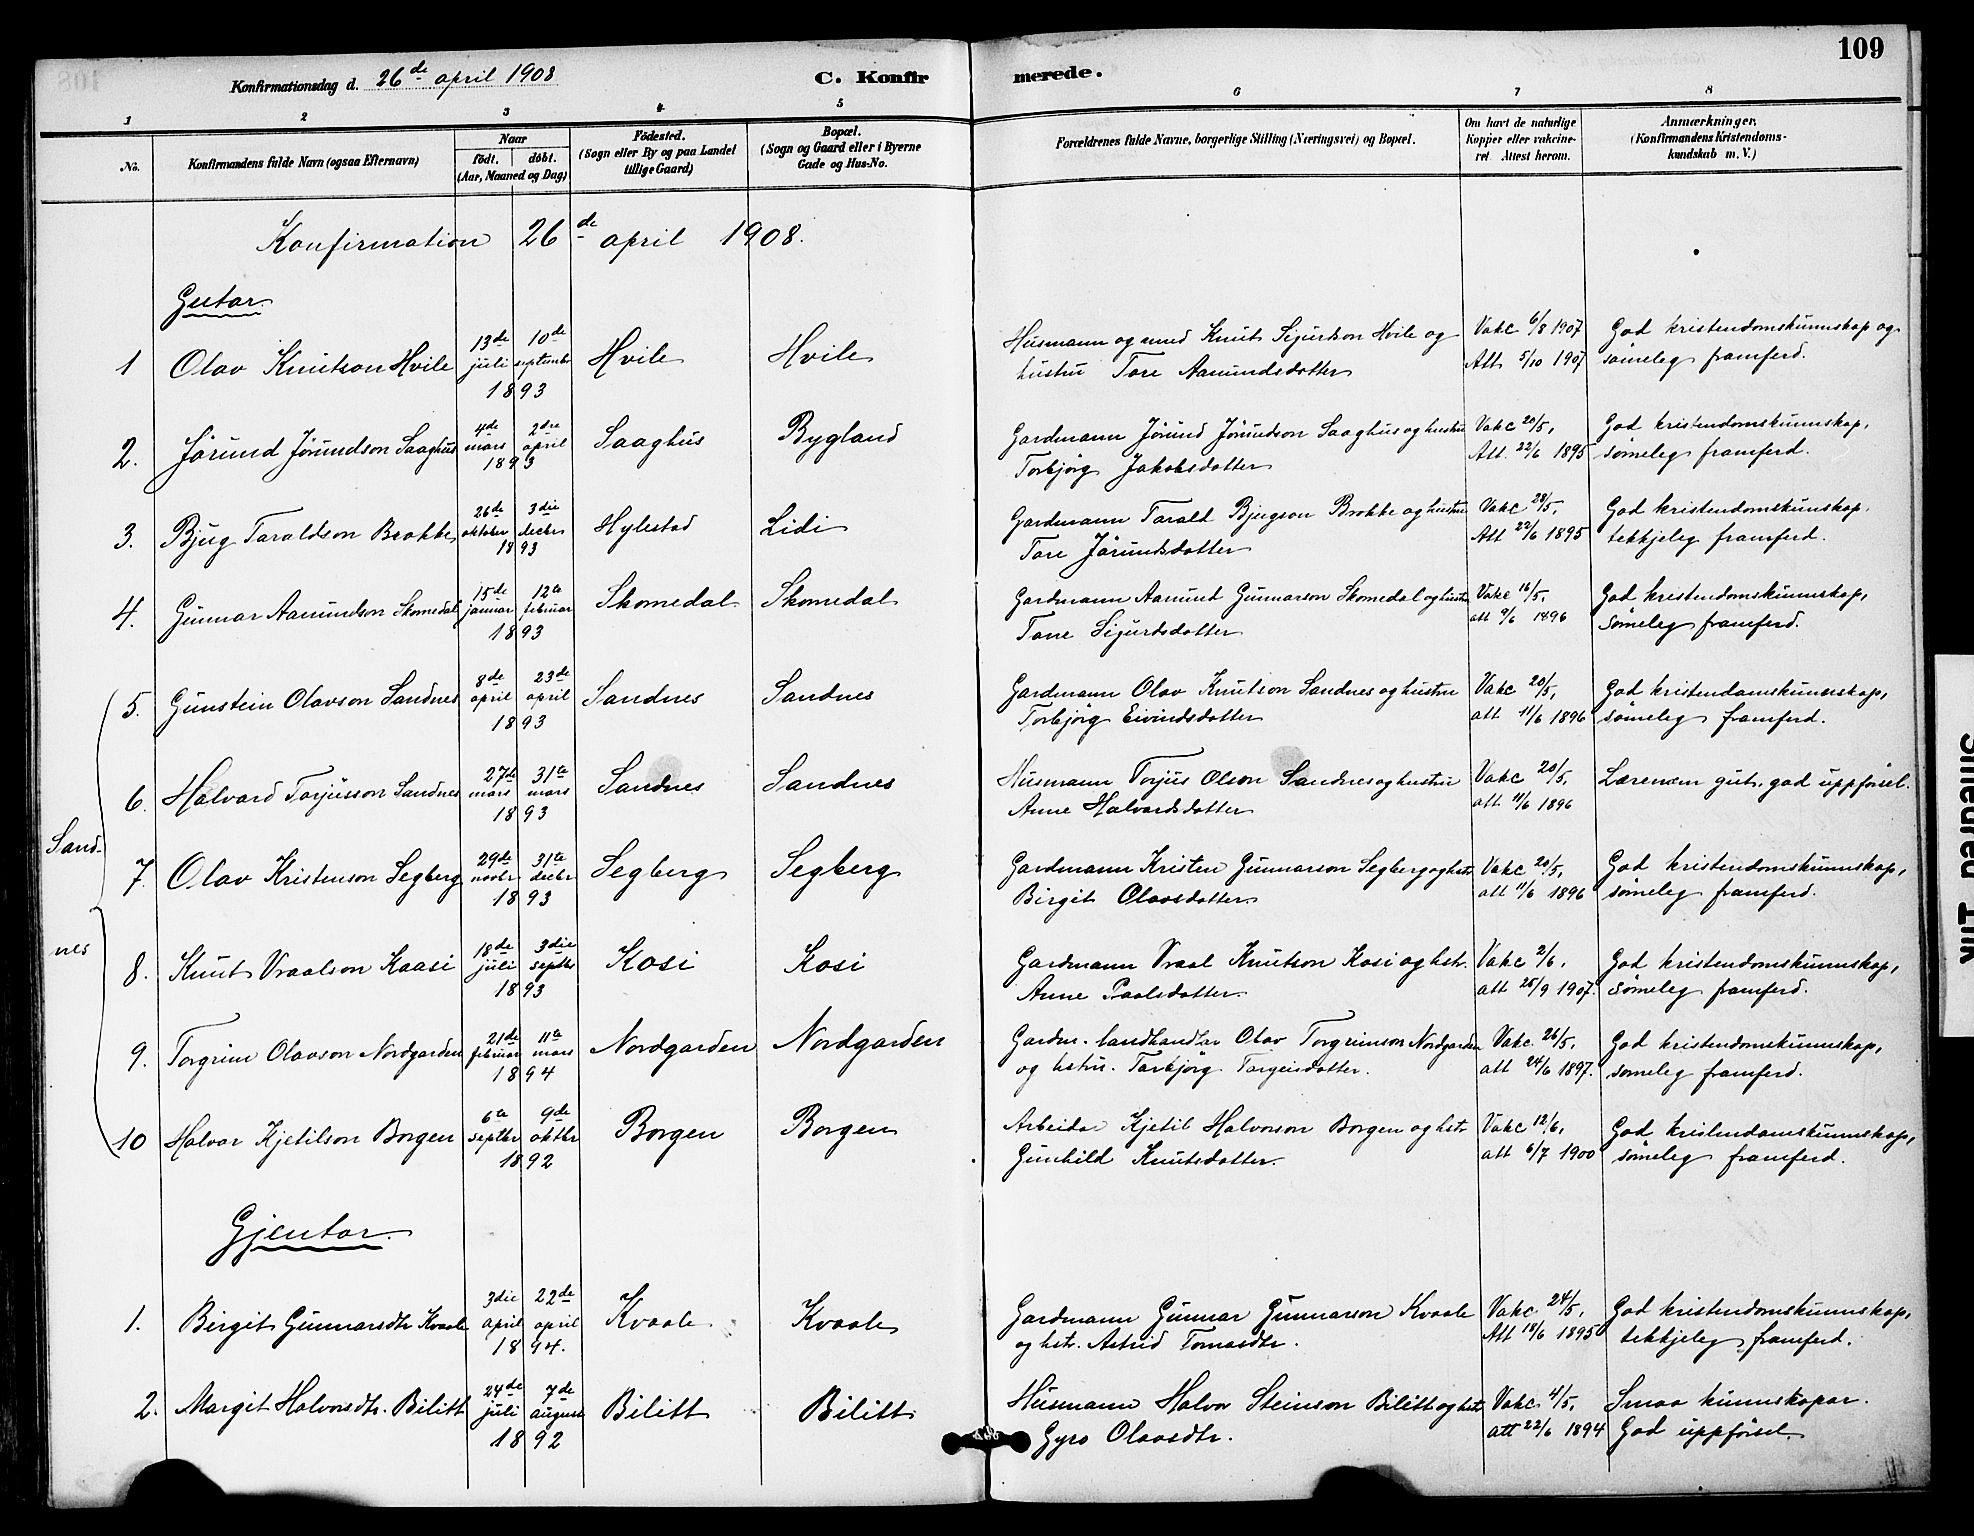 109
Konfirmationsdag d. 26de april 1908
C. Konfirmerede.
1 2 3 4 5 6 7 8
No.
Konfirmandens fulde Navn (ogsaa Efternavn)
Naar
födt. döbt.
(Aar, Maaned og Dag)
Födested.
(Sogn eller By og paa Landet
tillige Gaard)
Bopæl.
(Sogn og Gaard eller i Byerne
Gade og Hus-No.
Forældrenes fulde Navne, borgerlige Stilling (Næringsvei) og Bopæl.
Om havt de naturlige
Kopper eller vakcine-
ret. Attest herom.
Anmærkninger,
(Konfirmandens Kristendoms-
kundskab m. V.)
Konfirmation 26de april 1908.
Gutar.
1 Olav Knutson Hvile 13de juli 10de september 1893 Hvile Hvile
Husmann og smed Knut Sigurdson Hvile og
hustru Tore Aanundsdotter
Vakc 6/8 1907
Att. 5/10 1907
God kristendomskunnskap og
sömeleg framferd.
2. Jörund Jörundson Saaghus 4de mars 2den april 1893 Saaghus Bygland
Gardmann Jörund Jörundson Saaghus og hustru
Torbjörg Jakobsdotter
Vakc 20/5,
Att. 22/6 1895
God kristendomskunnskap,
sömeleg framferd.
3. Bjug Taraldson Brokke 26de oktober 3die decbr 1893 Hylestad Lidi
Gardmann Tarald Bjugson Brokke og hustru
Tore Jörundsdotter
Vakc 28/5,
Att 22/6 1895
God kristendomskunskap.
tekkjeleg framferd.
4. Gunnar Aanundson Skomedal 15de januar 12te februar 1893 Skomedal Skomedal
Gardmann Aanund Gunnarson Skomedal og hustru
Tone Sigurdsdotter
Vakc 16/5,
att 9/6 1896
God kristendomskunnskap,
sömeleg framferd.
Sandnes
5. Gunstein Olavson Sandnes 8de april 23de april 1893 Sandnes Sandnes
Gardmann Olav Knutson Sandnes og hustru
Torbjörg Eivindsdotter
Vakc 20/5,
att 11/6 1896
God kristendomskunnskap,
sömeleg framferd.
6. Halvard Torjusson Sandnes 27de mars 31te mars 1893 Sandnes Sandnes
Husmann Torjus Olson Sandnes og hustru
Anne Halvardsdotter
Vakc 20/5,
att 11/6 1896
Lærenem gut, god uppförsel.
7. Olav Kristenson Segberg 29de novbr 31te decbr 1893 Segberg Segberg
Gardmann Kristen Gunnarson Segberg og hstr.
Birgit Olavsdotter
Vakc 20/5,
att 11/6 1896
God kristendomskunnskap,
sömeleg framferd.
8. Knut Vraalson Kaasi 18de juli 3die septbr 1893 Kosi Kosi
Gardmann Vraal Knutson Kosi og hstr.
Anne Paalsdotter.
Vakc 2/6,
att 25/9 1907.
God kristendomskunnskap,
sömeleg framferd.
9. Torgrim Olavson Nordgarden 21de februar 11te mars 1894 Nordgarden Nordgarden
Gardm. landhandlar Olav Torgrimson Nordgarden
og hstru. Torbjörg Torgeirsdotter.
Vakc. 26/5,
att 24/6 1897.
God kristendomskunnskap,
sömeleg framferd.
10 Halvor Kjetilson Borgen 6te septbr 9de oktbr 1892 Borgen Borgen
Arbeidar Kjetil Halvorson Borgen og hstr
Gunhild Knutsdotter.
Vakc 12/6,
att 6/7 1900
God kristendomskunnskap,
sömeleg framferd.
Gjentor.
1. Birgit Gunnarsdtr Kvaale 3die april 22de april 1894. Kvaale Kvaale
Gardmann Gunnar Gunnarson Kvaale
og hstr. Astrid Tomasdtr.
Vakc 24/5,
Att 18/6 1895
God kristendomskunnskap,
tekkjeleg framferd.
2. Margit Halvorsdtr. Bilitt 24de juli 7de august 1892 Bilitt Bilitt
Husmann Halvor Steinson Bilitt og hstr
Gyro Olavsdtr.
Vakc. 4/5,
att 22/6 1894
Smaa kunnskapar.
God uppförsel.